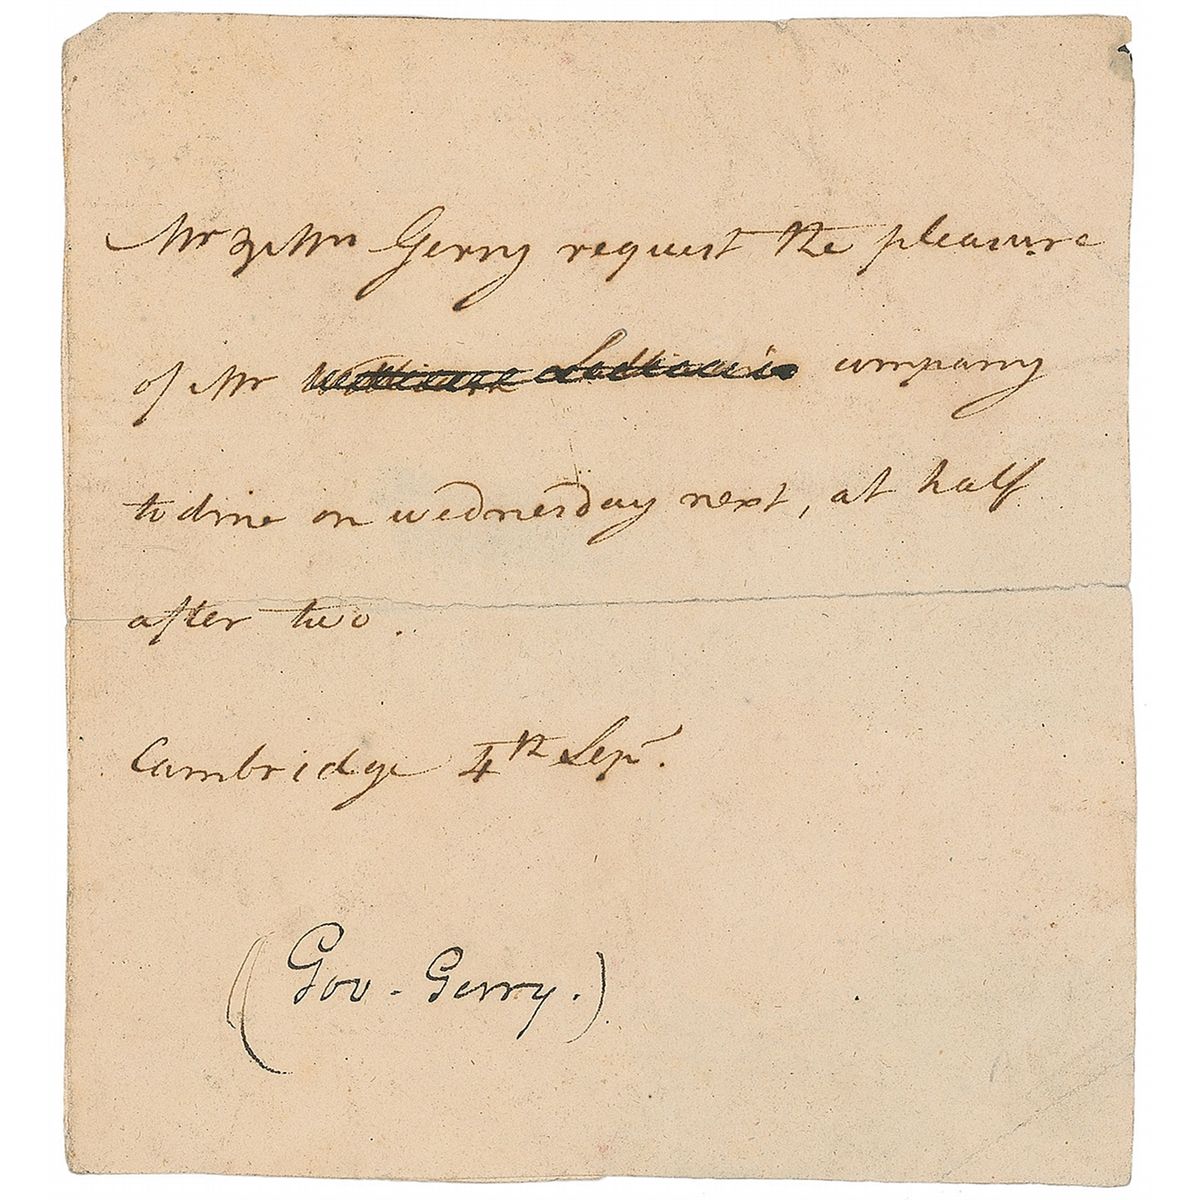 Mr & Mrs Gerry request the pleasure
of Mr company
to dine on wednesday next, at half
after two.
Cambridge 4th Sepr.
(Gov. Gerry.)